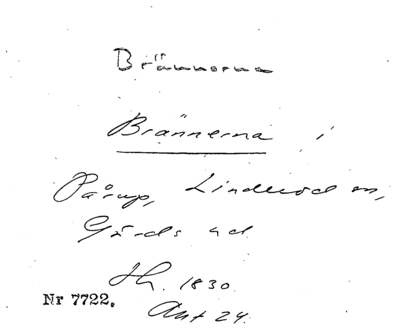 Brännorna
Brännerna i
Pårup, Linderöd sn,
Gärds hd.
Sk. 1830.
Nr 7722.
Akt 24.